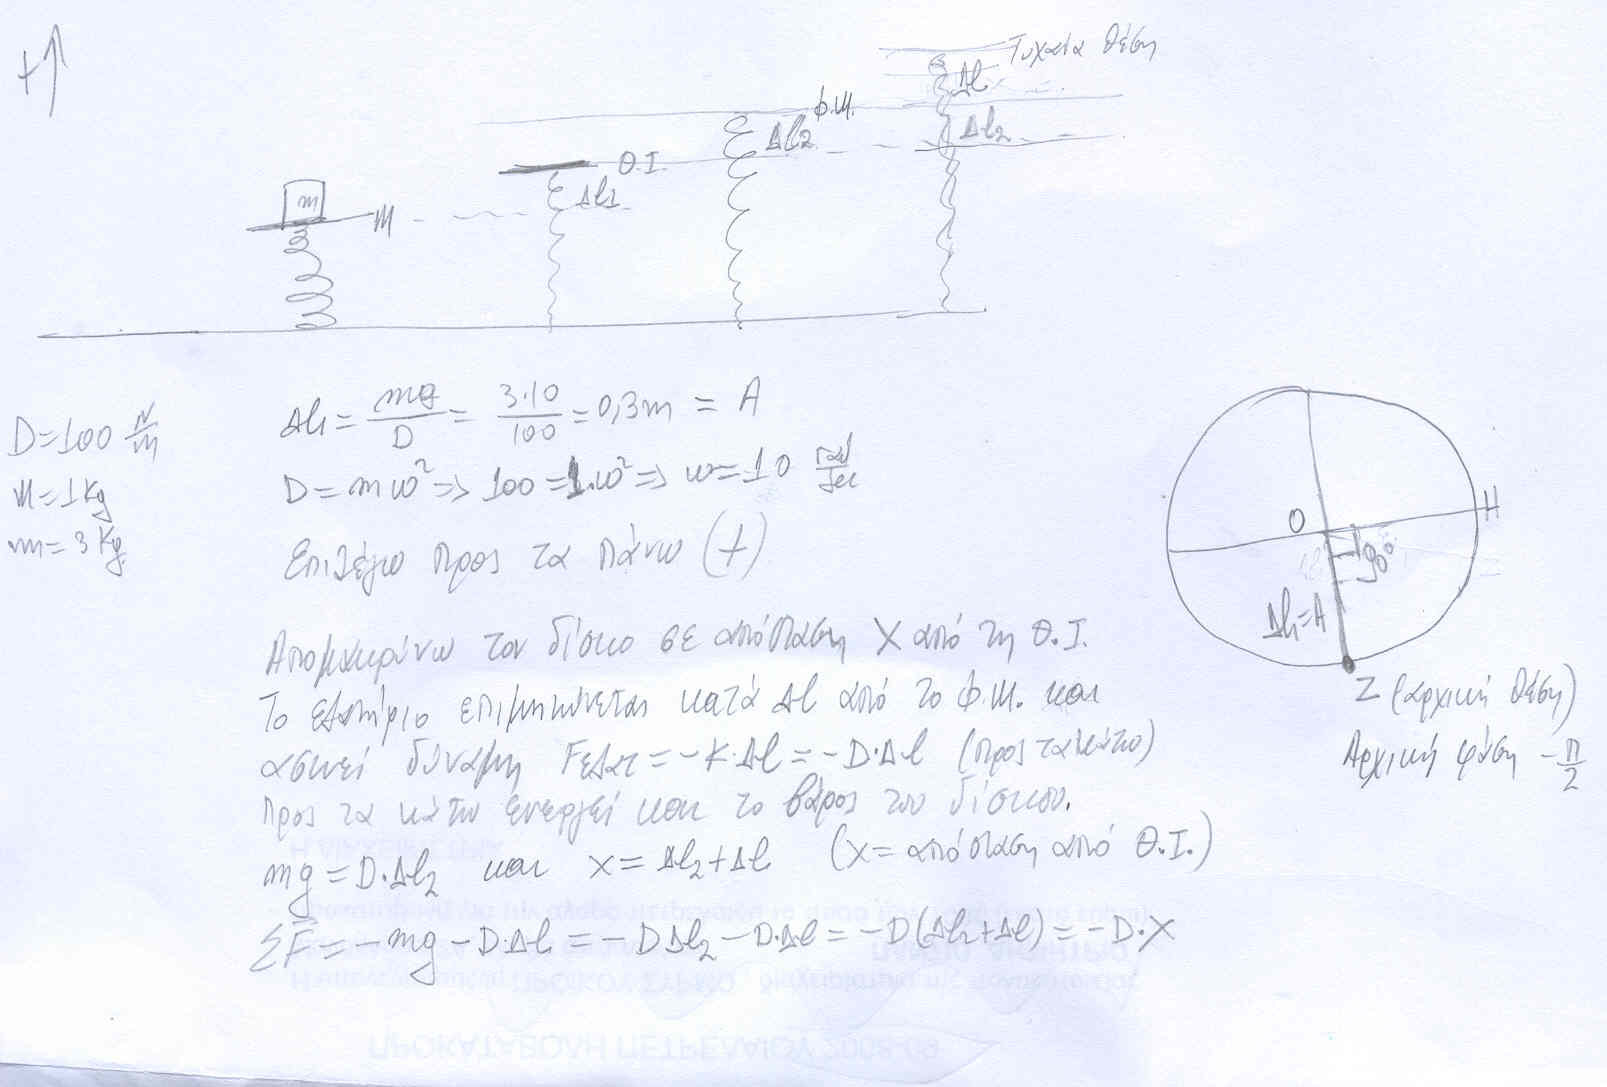 +
Τυχαία θέση
Δl
Φ.Μ.
Δl2
Δl2
Θ.Ι.
Δl1
m
M
D=100 N/m
M=1Kg
m=3Kg
Δl1 = mg/D = 3·10/100 = 0,3m = A
D=mω² => 100=1·ω² => ω=10 rad/sec
Επιλέγω προς τα πάνω (+)
Απομακρύνω τον δίσκο σε απόσταση x από τη Θ.Ι.
Το ελατήριο επιμηκύνεται κατά Δl από το Φ.Μ. και
ασκεί δύναμη Fελατ = -K·Δl = -D·Δl (προς τα κάτω)
Προς τα κάτω ενεργεί και το βάρος του δίσκου.
mg = D·Δl2 και x = Δl2+Δl (x= απόσταση από Θ.Ι.)
ΣF = -mg - D·Δl = -DΔl2 - D·Δl = -D(Δl2+Δl) = -D·x
O
H
90°
Δl1=A
Z (αρχική θέση)
Αρχική φάση -π/2
ΠΡΟΚΑΤΑΒΟΛΗ ΠΕΤΡΕΛΑΙΟΥ 2008-09